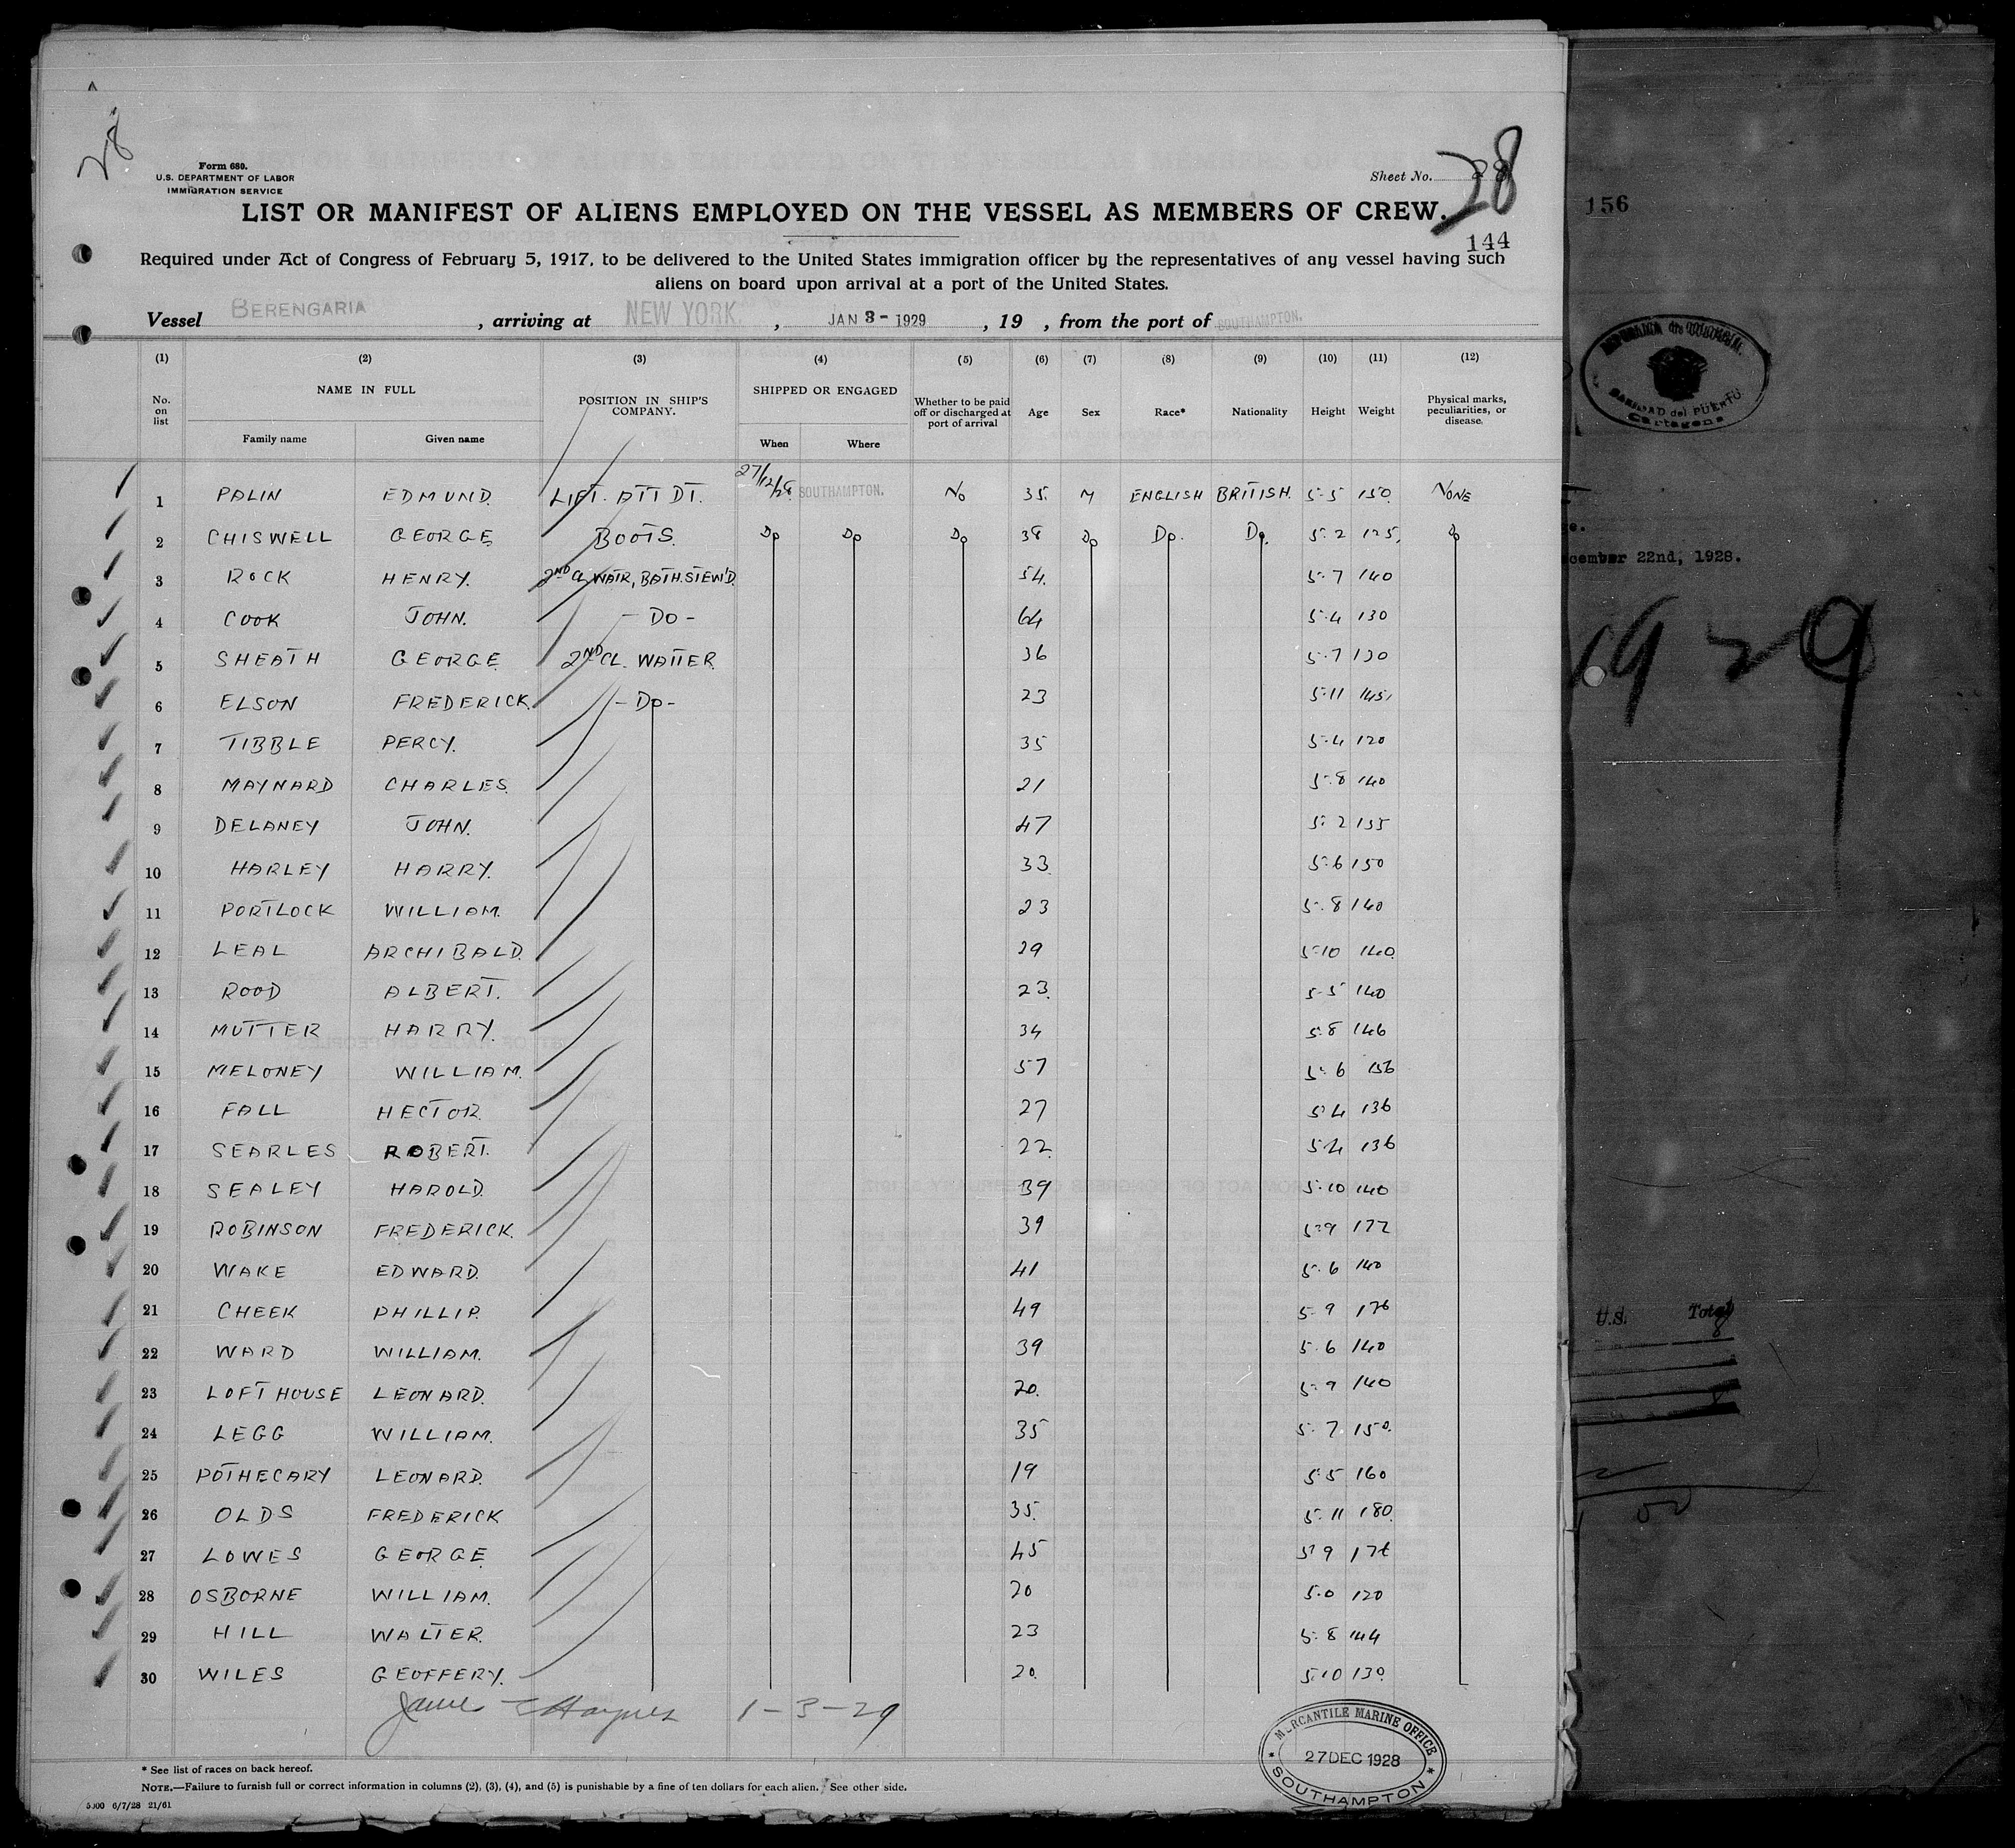 28
Form 680.
U.S. DEPARTMENT OF LABOR
IMMIGRATION SERVICE
Sheet No. 28
28
LIST OR MANIFEST OF ALIENS EMPLOYED ON THE VESSEL AS MEMBERS OF CREW.
144
Required under Act of Congress of February 5, 1917, to be delivered to the United States immigration officer by the representatives of any vessel having such
aliens on board upon arrival at a port of the United States.
Vessel BERENGARIA, arriving at NEW YORK, JAN 3 - 1929, 19 , from the port of SOUTHAMPTON.
(1) (2) (3) (4) (5) (6) (7) (8) (9) (10) (11) (12)
No. on list NAME IN FULL Family name Given name POSITION IN SHIP'S COMPANY. SHIPPED OR ENGAGED When Where Whether to be paid off or discharged at port of arrival Age Sex Race* Nationality Height Weight Physical marks, peculiarities, or disease.
1 PALIN EDMUND. LIFT. ATTDT. 27/12/28. SOUTHAMPTON. No 35. M ENGLISH BRITISH. 5-5 150. NONE
2 CHISWELL GEORGE BOOTS. Do Do Do 38 Do Do. Do. 5.2 125, Do
3 ROCK HENRY. 2ND CL WAITR, BATH.STEW'D. 54. 5.7 140
4 COOK JOHN. - DO - 64 5.4 130
5 SHEATH GEORGE 2ND CL. WAITER. 36 5.7 130
6 ELSON FREDERICK. - Do - 23 5.11 145,
7 TIBBLE PERCY. 35 5.4 120
8 MAYNARD CHARLES. 21 5.8 140
9 DELANEY JOHN. 47 5.2 135
10 HARLEY HARRY. 33. 5.6 150
11 PORTLOCK WILLIAM. 23 5.8 140
12 LEAL ARCHIBALD. 29 5.10 140.
13 ROOD ALBERT. 23. 5.5 140
14 MUTTER HARRY. 34 5.8 146
15 MELONEY WILLIAM. 57 5.6 156
16 FALL HECTOR. 27 5.4 136
17 SEARLES ROBERT. 22. 5.4 136
18 SEALEY HAROLD. 39 5.10 140
19 ROBINSON FREDERICK. 39 5.9 172
20 WAKE EDWARD. 41 5.6 140
21 CHEEK PHILLIP. 49 5.9 176
22 WARD WILLIAM. 39 5.6 140
23 LOFTHOUSE LEONARD. 20. 5.9 140
24 LEGG WILLIAM. 35 5.7. 150.
25 POTHECARY LEONARD. 19 5.5 160
26 OLDS FREDERICK 35. 5.11 180.
27 LOWES GEORGE. 45 5.9 176
28 OSBORNE WILLIAM. 20 5.0 120
29 HILL WALTER. 23 5.8 144
30 WILES GEOFFERY. 20. 5.10 130.
James E Haynes 1-3-29
MERCANTILE MARINE OFFICE
27 DEC 1928
SOUTHAMPTON
* See list of races on back hereof.
NOTE.—Failure to furnish full or correct information in columns (2), (3), (4), and (5) is punishable by a fine of ten dollars for each alien. See other side.
5000 6/7/28 21/61
156
SANIDAD del PUERTO
Cartagena
December 22nd, 1928.
1929
U.S. Total
8